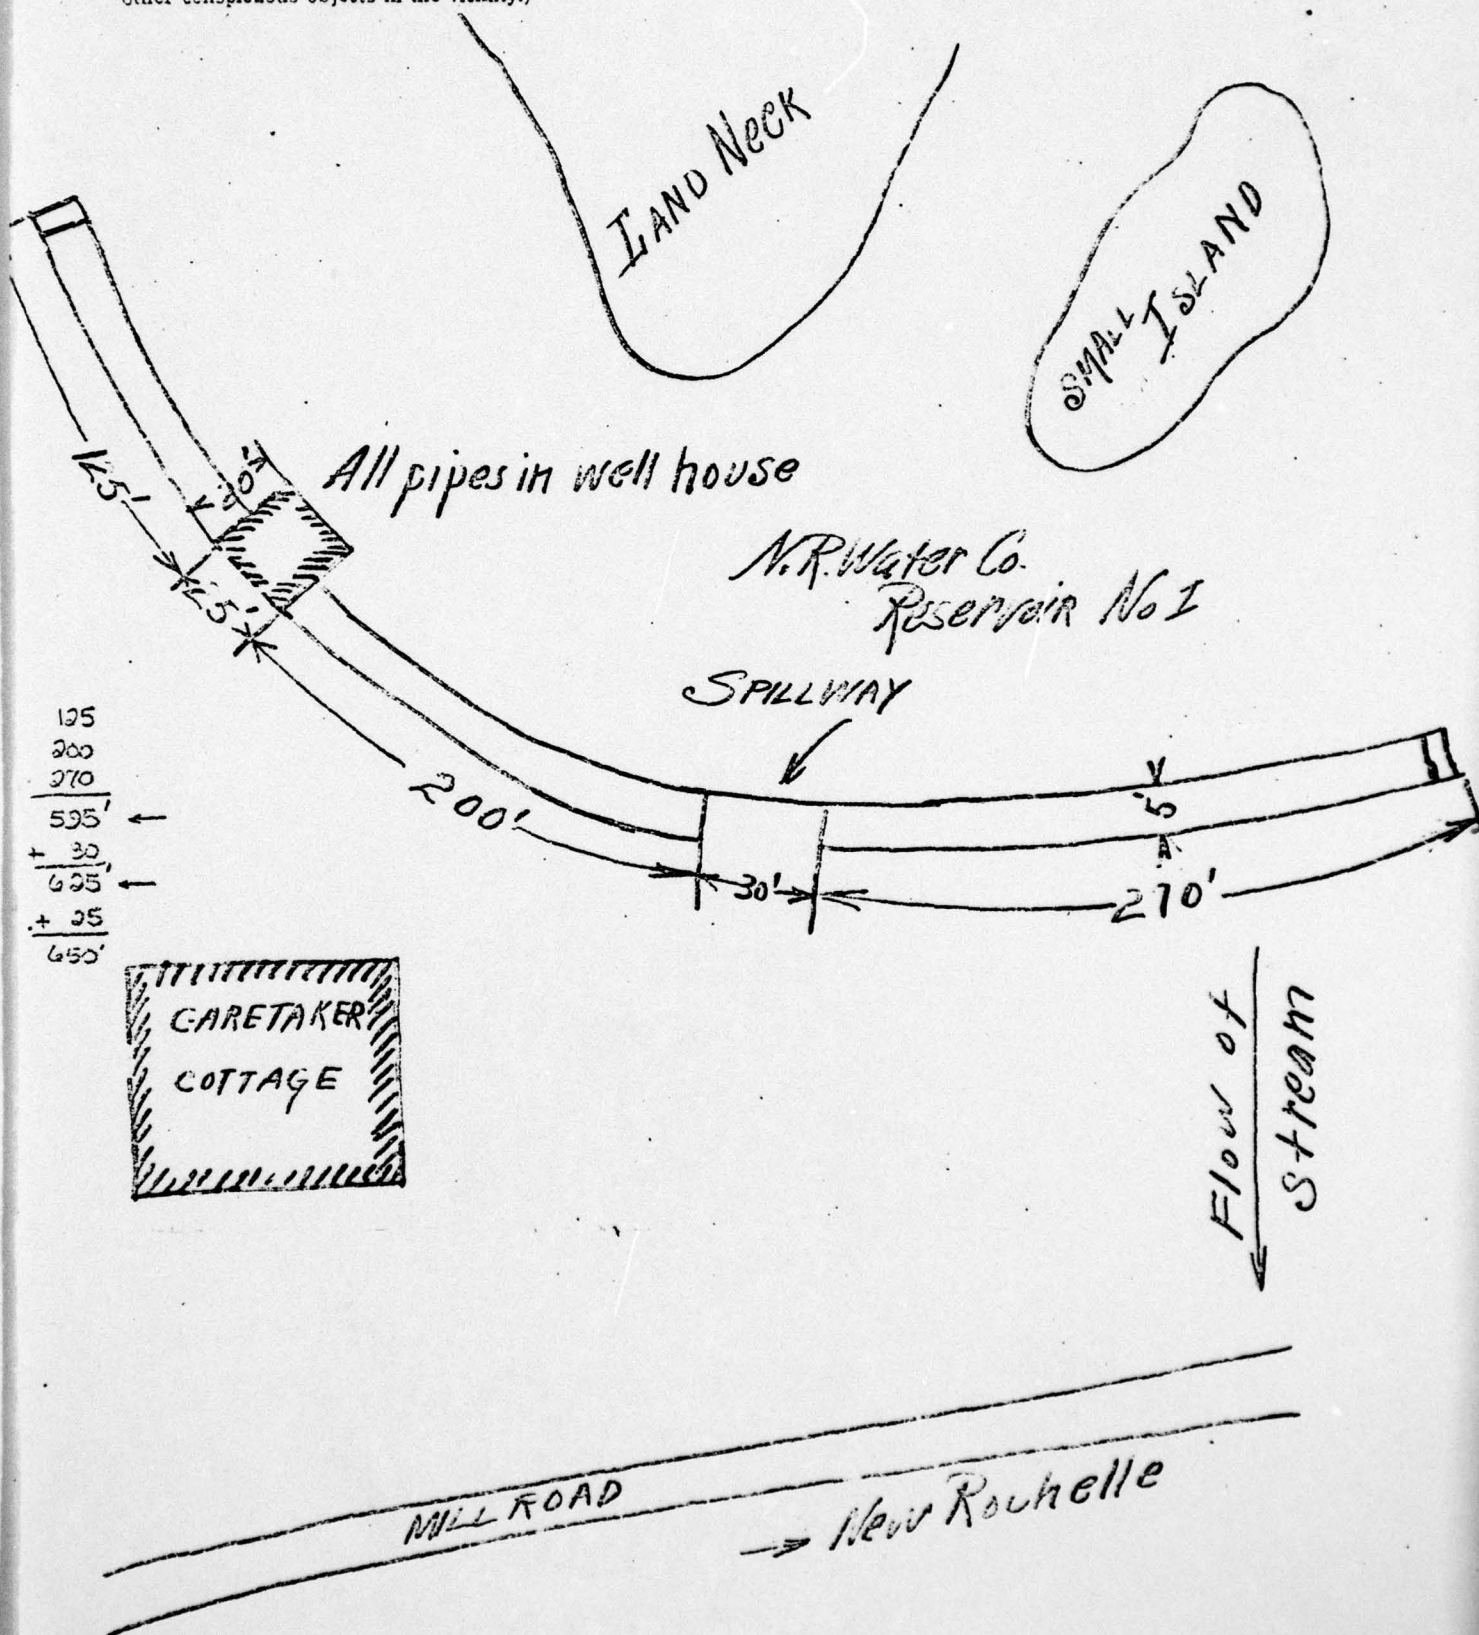 other conspicuous objects in the vicinity.)
LAND NECK
SMALL
ISLAND
125'
20'
All pipes in well house
25'
N.R. Water Co.
Reservoir No I
SPILLWAY
200'
30'
5'
270'
125
200
270
595'
+ 30
625'
+ 25
650'
CARETAKER
COTTAGE
Flow of
Stream
MILL ROAD
New Rochelle